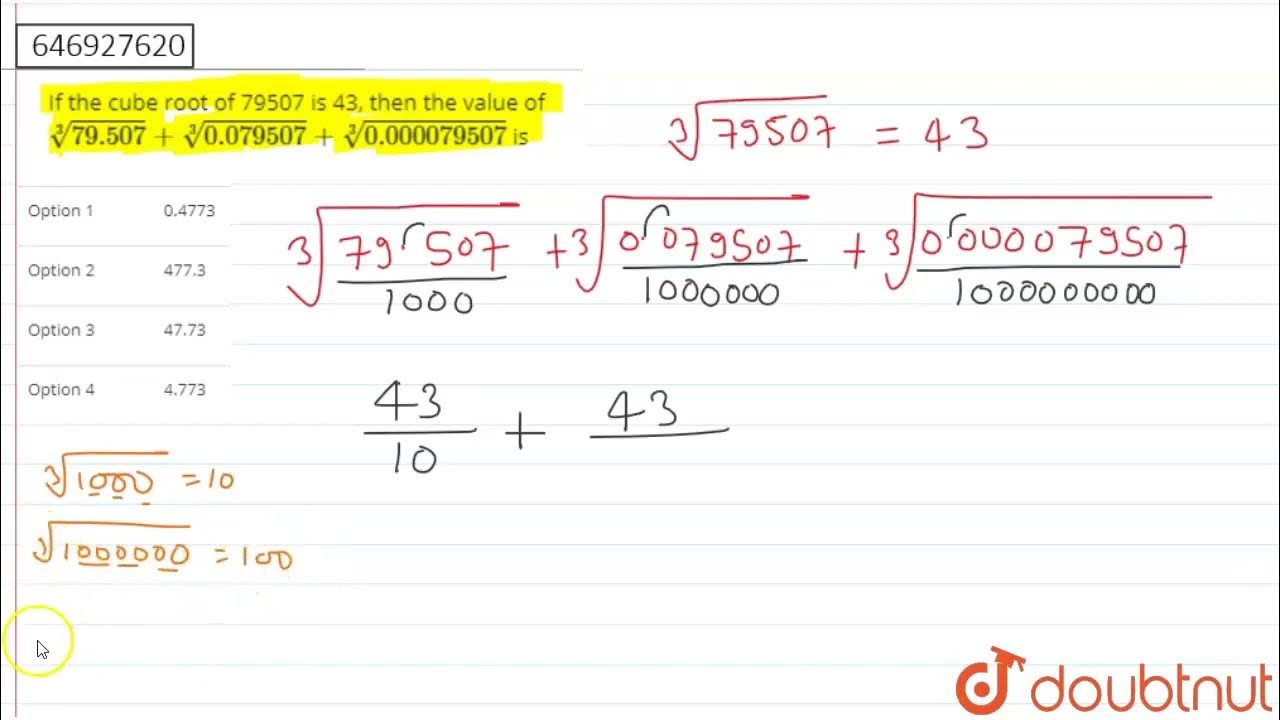 646927620
If the cube root of 79507 is 43, then the value of
∛79.507 + ∛0.079507 + ∛0.000079507 is
∛79507 = 43
Option 1 0.4773
Option 2 477.3
Option 3 47.73
Option 4 4.773
∛(79 507/1000) + ∛(0 079507/1000000) + ∛(0 000079507/1000000000)
43/10 + 43/
∛1000 = 10
∛1000000 = 100
doubtnut